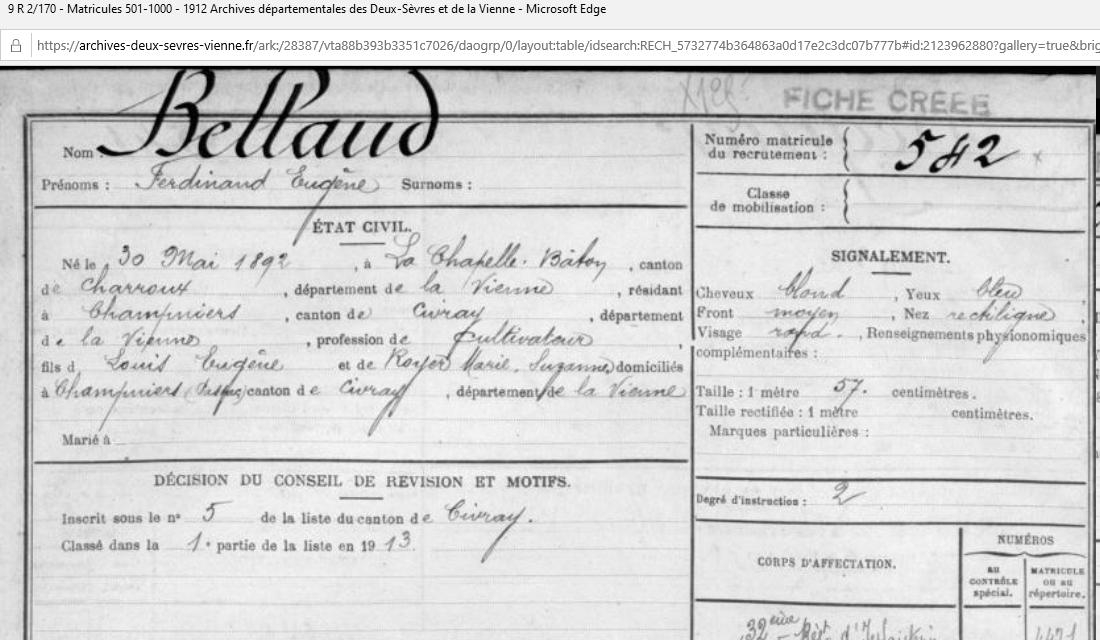 9 R 2/170 - Matricules 501-1000 - 1912 Archives départementales des Deux-Sèvres et de la Vienne - Microsoft Edge
https://archives-deux-sevres-vienne.fr/ark:/28387/vta88b393b3351c7026/daogrp/0/layout:table/idsearch:RECH_5732774b364863a0d17e2c3dc07b777b#id:2123962880?gallery=true&brig
FICHE CREEE
Nom : Bellaud
Prénoms : Ferdinand Eugène Surnoms :
ÉTAT CIVIL.
Né le 30 Mai 1892, à La Chapelle-Bâton, canton
de Charroux, département de la Vienne, résidant
à Champniers, canton de Civray, département
de la Vienne, profession de Cultivateur
fils d Louis Eugène et de Royer Marie, Suzanne, domiciliés
à Champniers canton de Civray, département de la Vienne
Marié à
DÉCISION DU CONSEIL DE REVISION ET MOTIFS.
Inscrit sous le nº 5 de la liste du canton de Civray.
Classé dans la 1e partie de la liste en 1913.
Numéro matricule
du recrutement : 542
Classe
de mobilisation :
SIGNALEMENT.
Cheveux blond, Yeux bleu,
Front moyen, Nez rectiligne
Visage rond., Renseignements physionomiques
complémentaires :
Taille : 1 mètre 57. centimètres.
Taille rectifiée : 1 mètre centimètres.
Marques particulières :
Degré d'instruction : 2
CORPS D'AFFECTATION.
NUMÉROS
AU
CONTRÔLE
spécial.
MATRICULE
OU AU
répertoire.
32ème Régt d'Infanterie